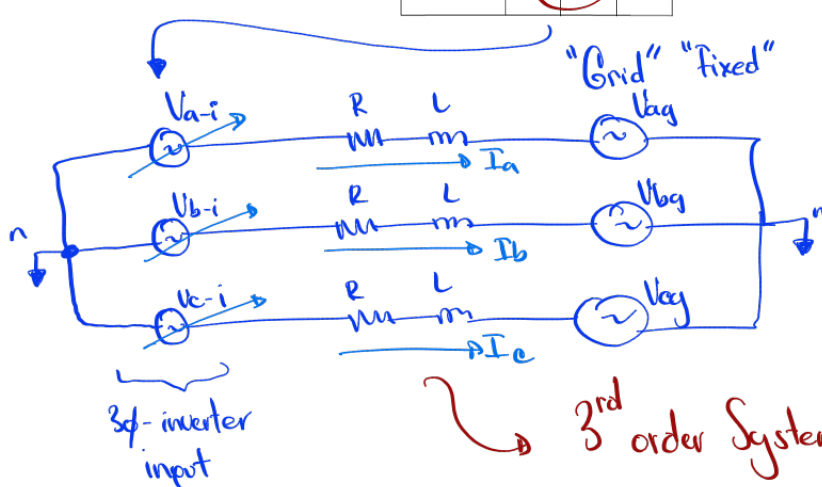 "Grid" "Fixed"
Va-i R L Vag
Ia
n Vb-i R L Vbg n
Ib
Vc-i R L Vcg
Ic
3ϕ-inverter
input
3rd order System